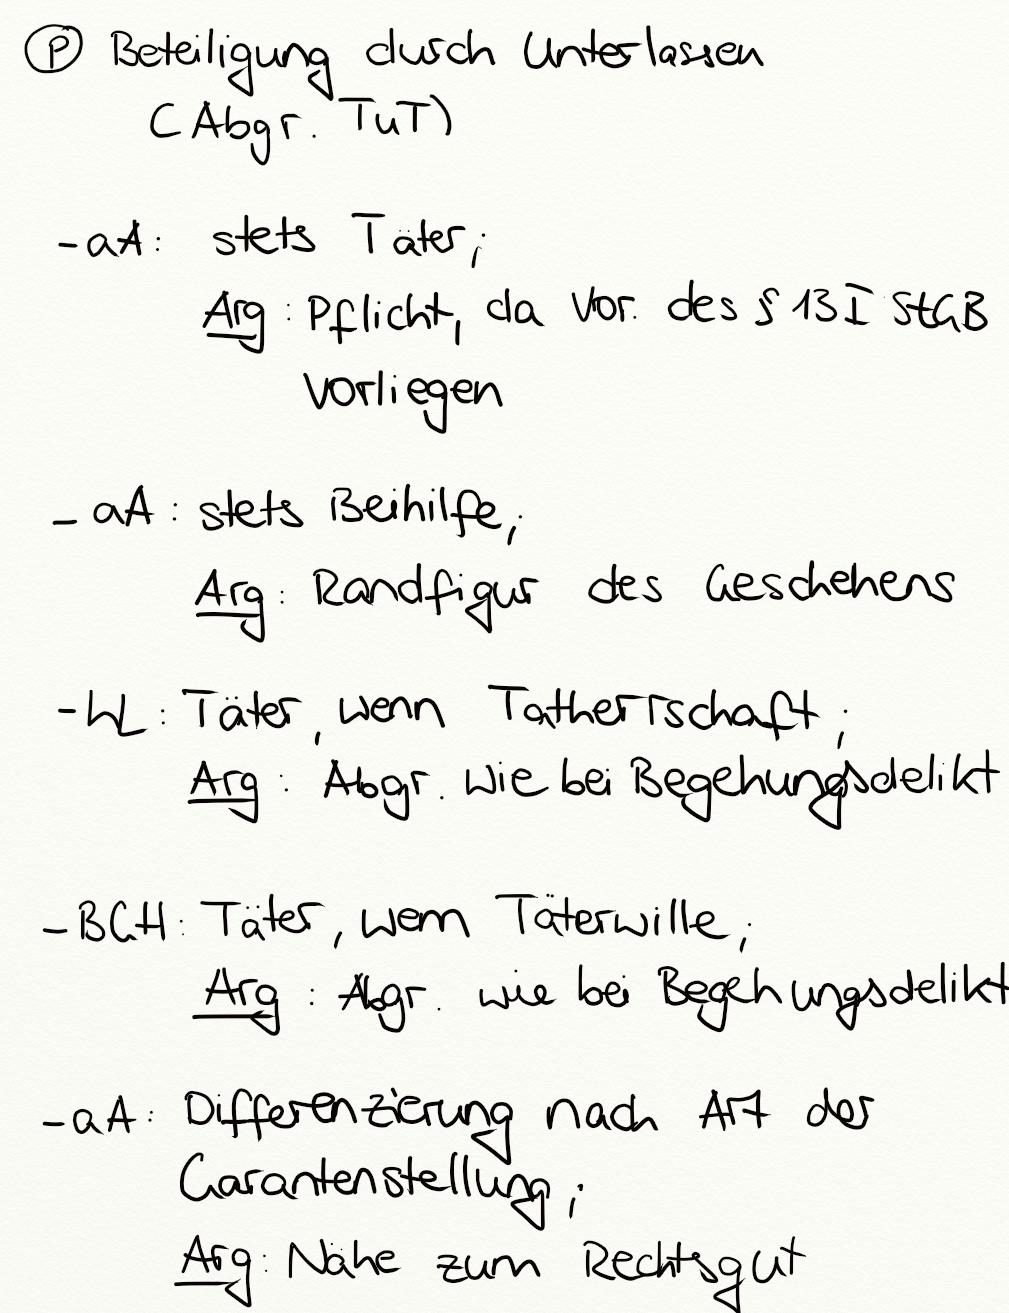 Ⓟ Beteiligung durch Unterlassen
(Abgr. TuT)
- aA: stets Täter;
Arg: Pflicht, da Vor. des § 13 I StGB
vorliegen
- aA: stets Beihilfe;
Arg: Randfigur des Geschehens
- hL: Täter, wenn Tatherrschaft;
Arg: Abgr. wie bei Begehungsdelikt
- BGH: Täter, wenn Täterwille;
Arg: Abgr. wie bei Begehungsdelikt
- aA: Differenzierung nach Art der
Garantenstellung;
Arg: Nähe zum Rechtsgut